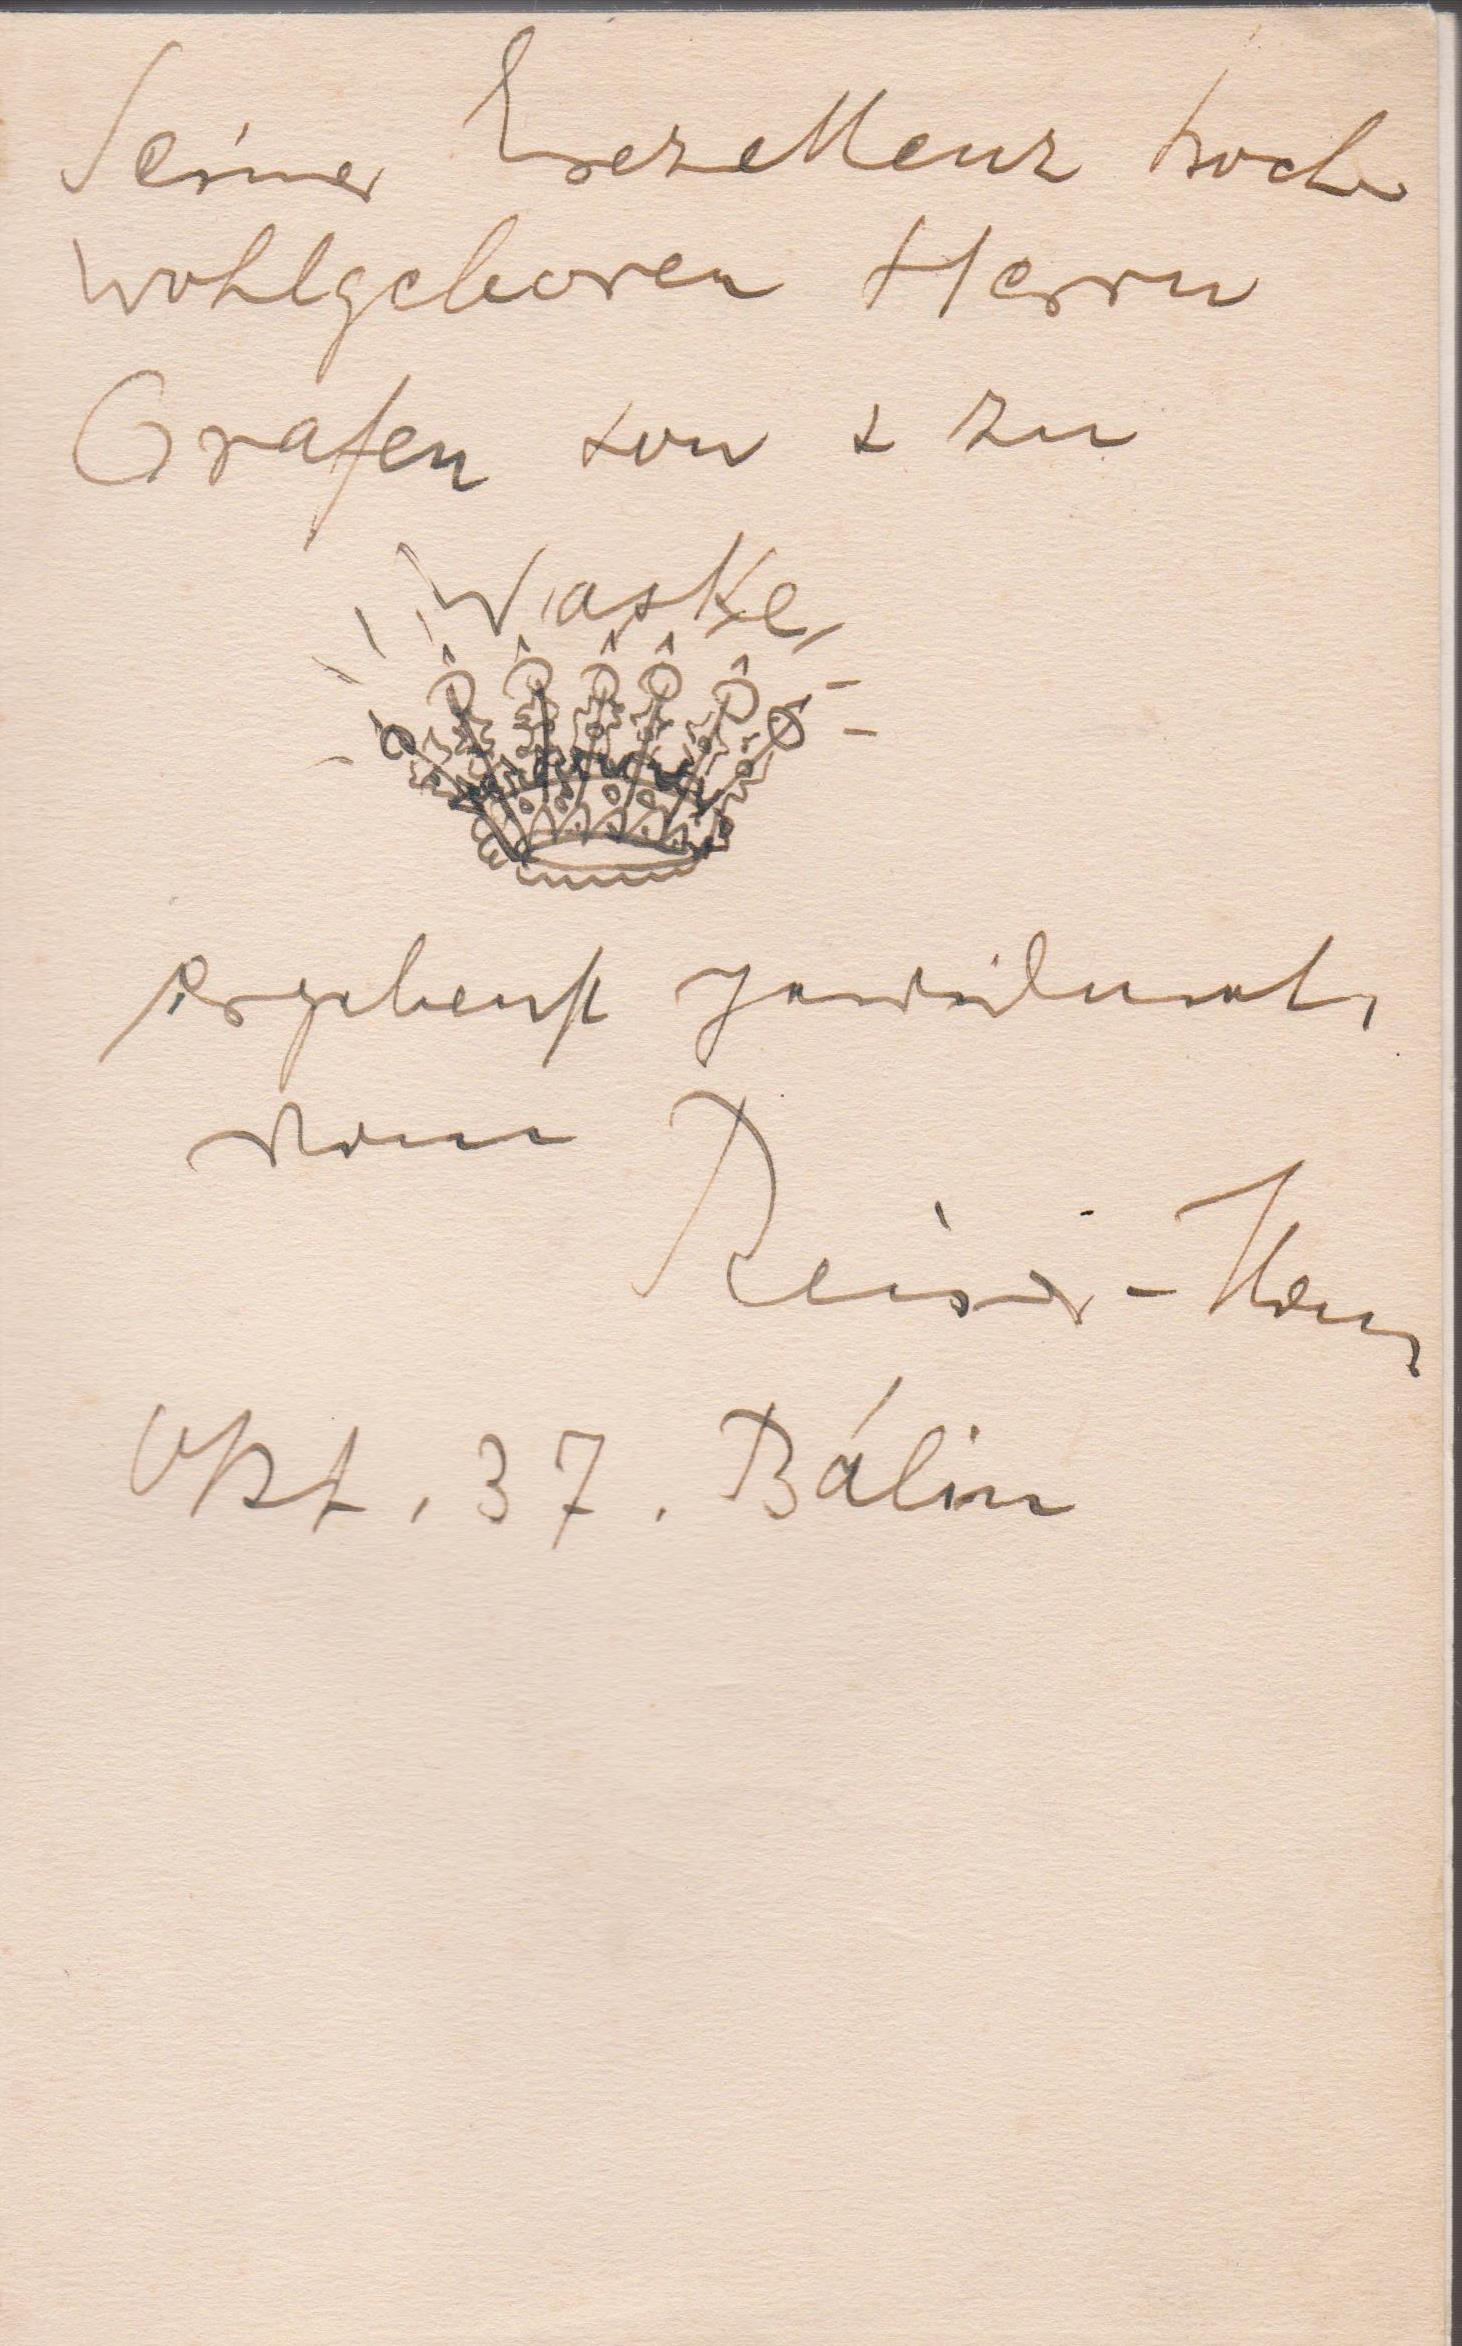 Seiner Exzellenz hoch
wohlgeboren Herrn
Grafen von & zu
Waske,
ergebenst gewidmet,
vom
Okt. 37. Bálin